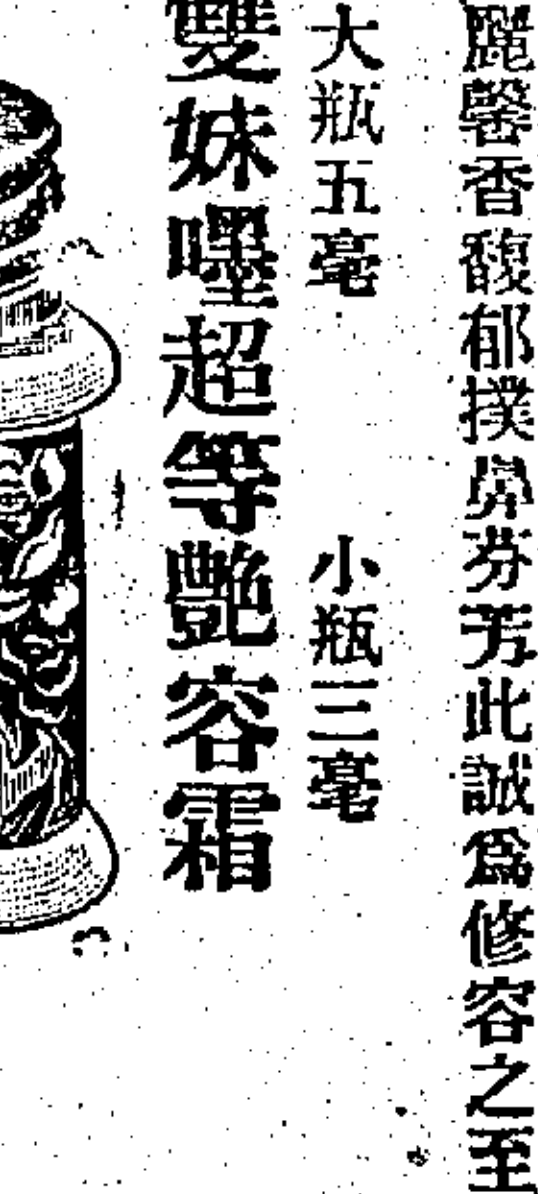 麗馨香馥郁撲鼻芬芳此誠爲修容之至
大瓶五毫 小瓶三毫
雙妹嚜超等艷容霜